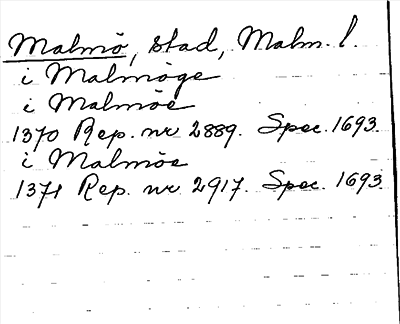 Malmö, stad, Malm. l.
i Malmöge
i Malmöe
1370 Rep. nr 2889. Spec. 1693.
i Malmöe
1371 Rep. nr 2917. Spec. 1693.